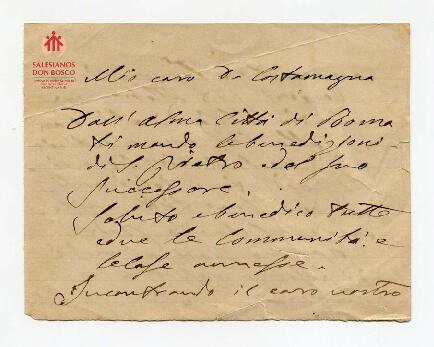 SALESIANOS
DON BOSCO
Mio caro D. Costamagna
Dall' alma Città di Roma
ti mando le benedizioni
di S. Pietro e del suo
successore.
Saluto e benedico tutte
e due le Communità e
le case annesse.
Incontrando il caro nostro